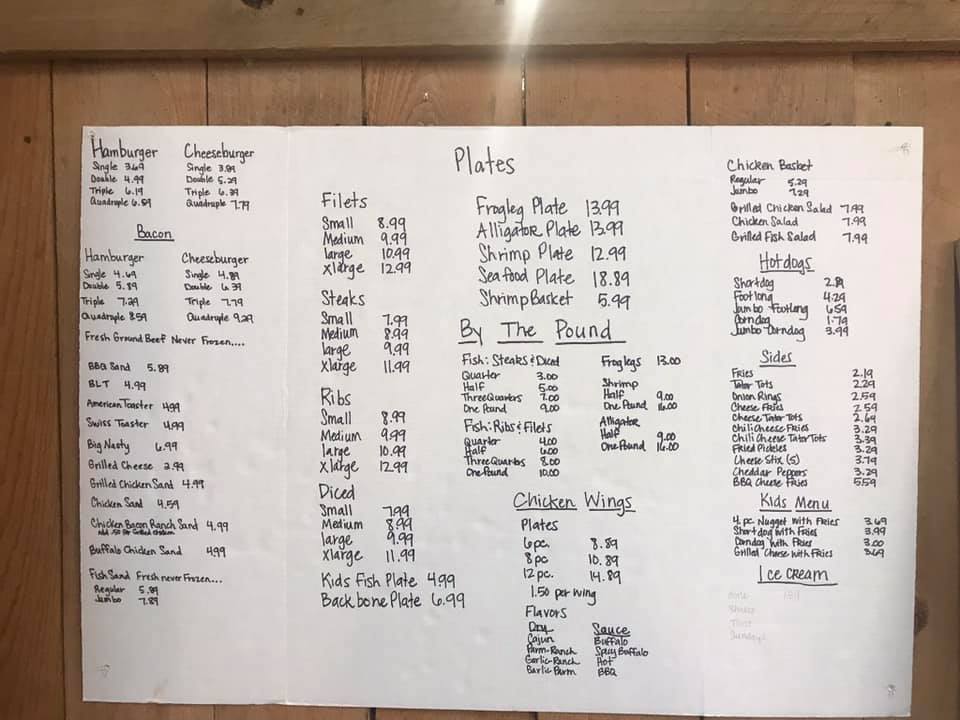 Hamburger
Single 3.69
Double 4.99
Triple 6.19
Quadruple 6.89
Cheeseburger
Single 3.89
Double 5.29
Triple 6.39
Quadruple 7.79
Bacon
Hamburger
Single 4.69
Double 5.89
Triple 7.29
Quadruple 8.59
Cheeseburger
Single 4.89
Double 6.39
Triple 7.79
Quadruple 9.29
Fresh Ground Beef Never Frozen....
BBQ Sand 5.89
BLT 4.99
American Toaster 4.99
Swiss Toaster 4.99
Big Nasty 6.99
Grilled Cheese 2.99
Grilled Chicken Sand 4.99
Chicken Sand 4.59
Chicken Bacon Ranch Sand 4.99
Add .50 for Grilled Chicken
Buffalo Chicken Sand 4.99
Fish Sand Fresh never Frozen...
Regular 5.89
Jumbo 7.89
Plates
Filets
Small 8.99
Medium 9.99
large 10.99
Xlarge 12.99
Steaks
Small 7.99
Medium 8.99
large 9.99
Xlarge 11.99
Ribs
Small 8.99
Medium 9.99
large 10.99
Xlarge 12.99
Diced
Small 7.99
Medium 8.99
large 9.99
Xlarge 11.99
Kids Fish Plate 4.99
Backbone Plate 6.99
Frogleg Plate 13.99
Alligator Plate 13.99
Shrimp Plate 12.99
Seafood Plate 18.89
Shrimp Basket 5.99
By The Pound
Fish: Steaks & Diced
Quarter 3.00
Half 5.00
Three Quarters 7.00
One Pound 9.00
Fish: Ribs & Filets
Quarter 4.00
Half 6.00
Three Quarters 8.00
One Pound 10.00
Froglegs 13.00
Shrimp
Half 9.00
One Pound 16.00
Alligator
Half 9.00
One Pound 16.00
Chicken Wings
Plates
6 pc. 8.89
8 pc 10.89
12 pc. 14.89
1.50 per wing
Flavors
Dry
Cajun
Parm-Ranch
Garlic-Ranch
Garlic Parm
Sauce
Buffalo
Spicy Buffalo
Hot
BBQ
Chicken Basket
Regular 5.29
Jumbo 7.29
Grilled Chicken Salad 7.99
Chicken Salad 7.99
Grilled Fish Salad 7.99
Hotdogs
Shortdog 2.89
Footlong 4.29
Jumbo Footlong 6.59
Corndog 1.79
Jumbo Corndog 3.99
Sides
Fries 2.19
Tator Tots 2.29
Onion Rings 2.59
Cheese Fries 2.59
Cheese Tator Tots 2.69
Chili Cheese Fries 3.29
Chili Cheese Tator Tots 3.39
Fried Pickles 3.29
Cheese Stix (5) 3.79
Cheddar Peppers 3.29
BBQ Cheese Fries 5.59
Kids Menu
4 pc. Nugget with Fries 3.69
Shortdog with Fries 3.99
Corndog with Fries 3.00
Grilled Cheese with Fries 3.69
Ice Cream
Cone
Shake
Twist
Sundays